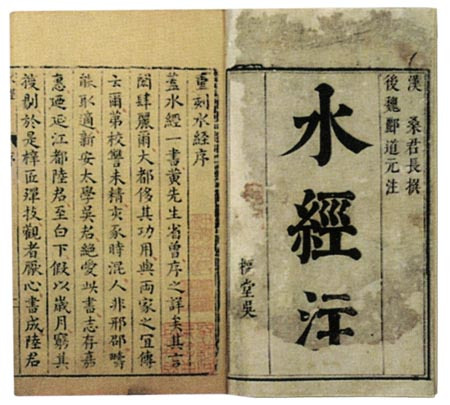 漢 桑君長撰
後魏酈道元注
水經注
堂吳
重刻水經序
蓋水經一書黄先生省曾序之詳矣其言
閎肆麗爾大都侈其功用與兩家之宜傳
云爾第校讐未精亥豕時混人非邢邵疇
能取適新安太學吳君絕愛此書志存嘉
惠迺延江都陸君至白下假以歲月窮其
於是梓匠殫技觀者厭心書成陸君